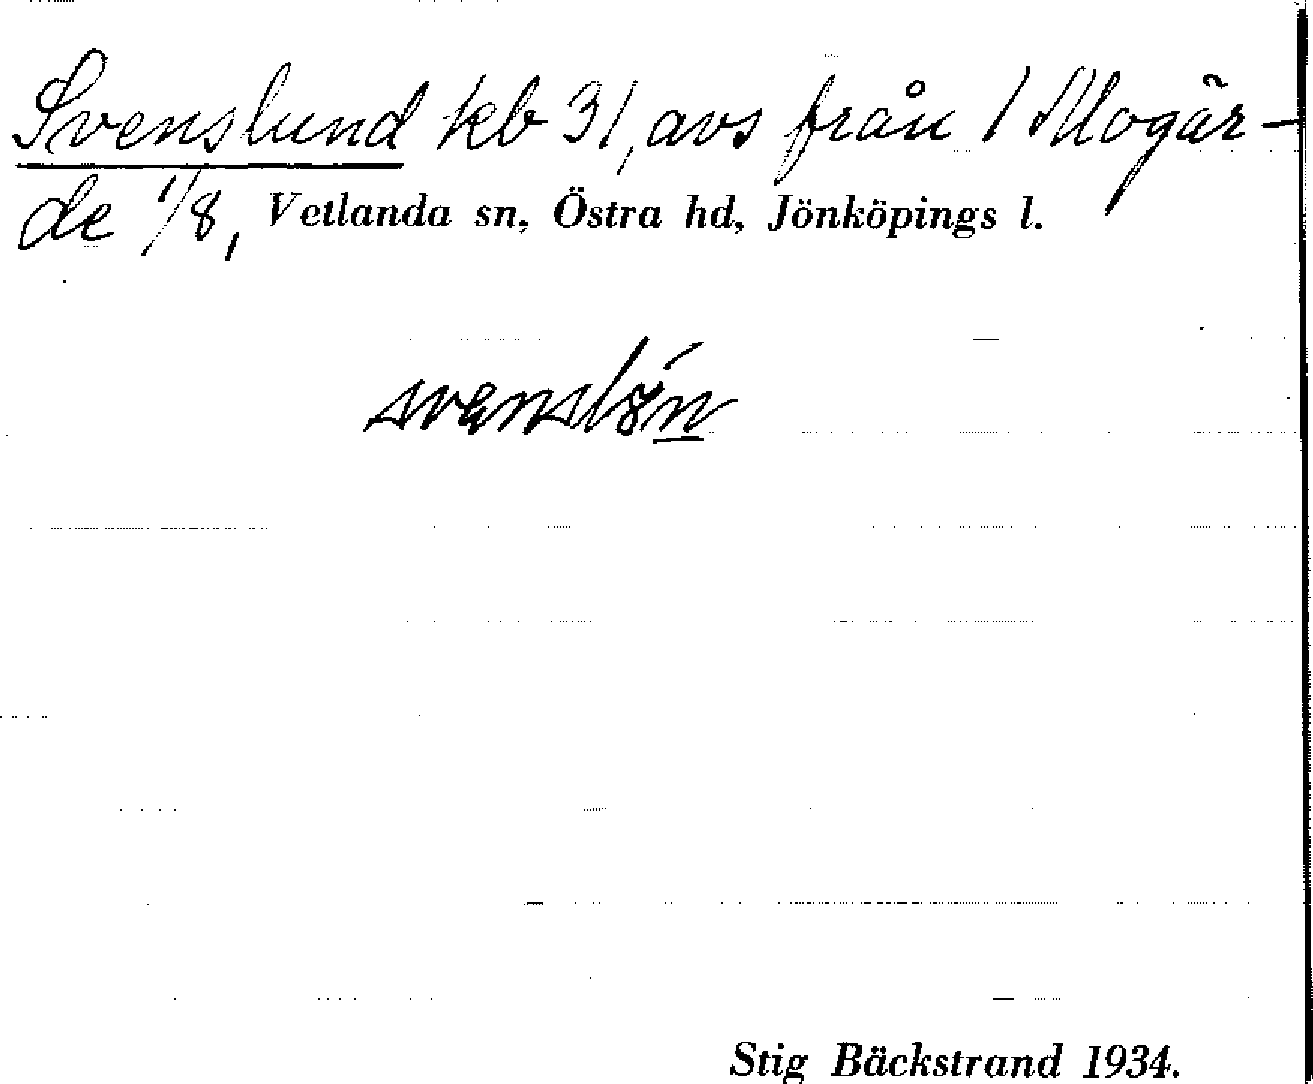 Svenslund kb 31, avs från 1 Mogär-
de 1/8, Vetlanda sn, Östra hd, Jönköpings l.
Stig Bäckstrand 1934.